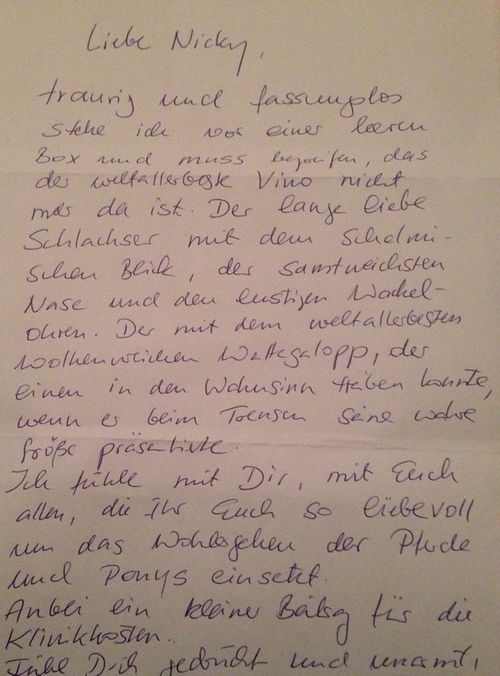 Liebe Nicky,
traurig und fassungslos
stehe ich vor einer leeren
Box und muss begreifen, das
der weltallerbeste Vino nicht
mehr da ist. Der lange liebe
Schlachser mit dem schelmi-
schen Blick, der samtweichsten
Nase und den lustigen Wackel-
ohren. Der mit dem weltallerbesten
wolkenweichen Wattegalopp, der
einen in den Wahnsinn treiben konnte,
wenn er beim Trensen seine wahre
Größe präsentierte.
Ich fühle mit Dir, mit Euch
allen, die Ihr Euch so liebevoll
um das Wohlergehen der Pferde
und Ponys einsetzt.
Anbei ein kleiner Beitrag für die
Klinikkosten.
Fühle Dich gedrückt und umarmt,